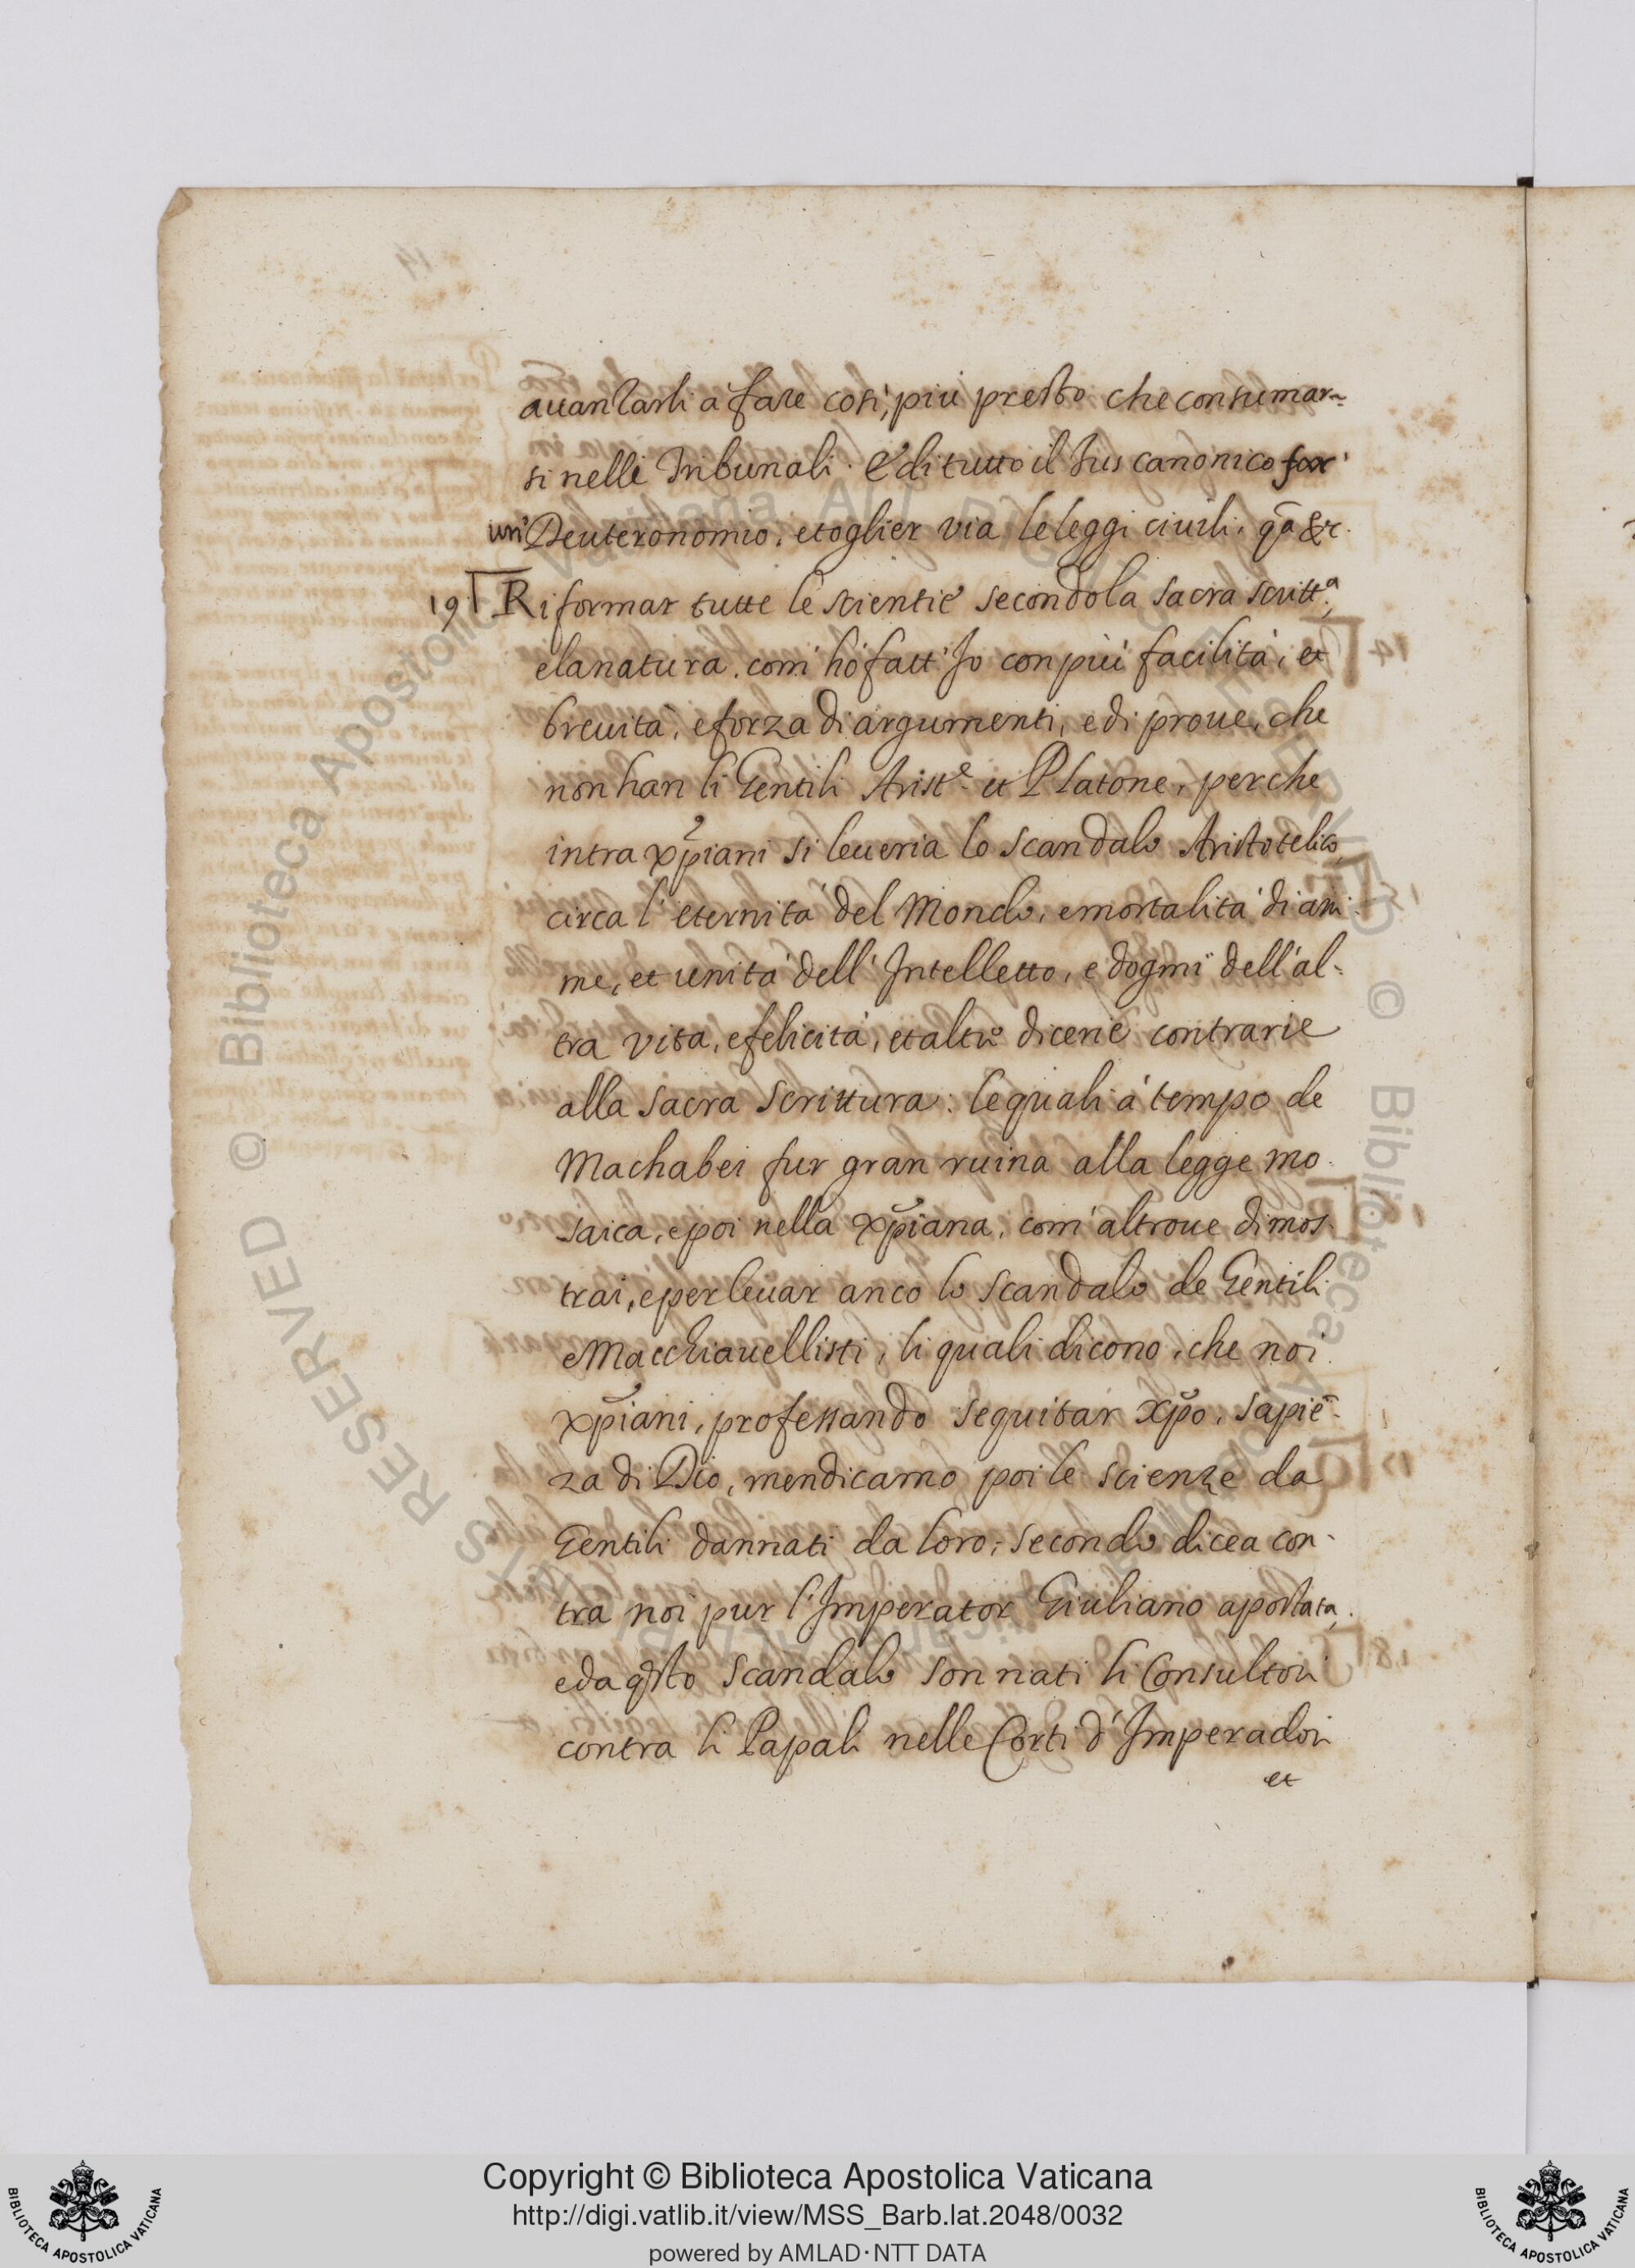 auantarli à fare cosi, più presto che consumar=
si nelli Tribunali. E di tutto il Jus canonico far'
un' Deuteronomio, e toglier via le leggi ciuili. q̄a &c.
19 Riformar tutte le scientie secondo la sacra scritt.ª,
e la natura, com' hò fatt' Jo con più facilità, et
breuità, e forza di argumenti, e di proue, che
non han li Gentili Arist.e et Platone, perche
intra xp̄iani si leueria lo scandalo Aristotelico
circa l' eternità del Mondo, e mortalità di ani-
me, et unità dell' Intelletto, e dogmi dell' al=
tra vita, e felicità, et altre dicerie contrarie
alla sacra scrittura: le quali à tempo de
Machabei fur gran ruina alla legge mo-
saica, e poi nella xp̄iana, com' altroue dimos-
trai, e per leuar anco lo scandalo de Gentili
e Macchiauellisti, li quali dicono, che noi
xp̄iani, professando seguitar xp̄o, sapiē-
za di Dio, mendicamo poi le scienze da
Gentili dannati da loro, secondo dicea con-
tra noi pur l'Imperator Giuliano apostata,
e da q̄sto scandalo son nati li Consultori
contra li Papali nelle Corti d' Imperadori
et
© Biblioteca Apostolica Vaticana ALL RIGHTS RESERVED
Copyright © Biblioteca Apostolica Vaticana
http://digi.vatlib.it/view/MSS_Barb.lat.2048/0032
powered by AMLAD·NTT DATA
BIBLIOTECA APOSTOLICA VATICANA
BIBLIOTECA APOSTOLICA VATICANA